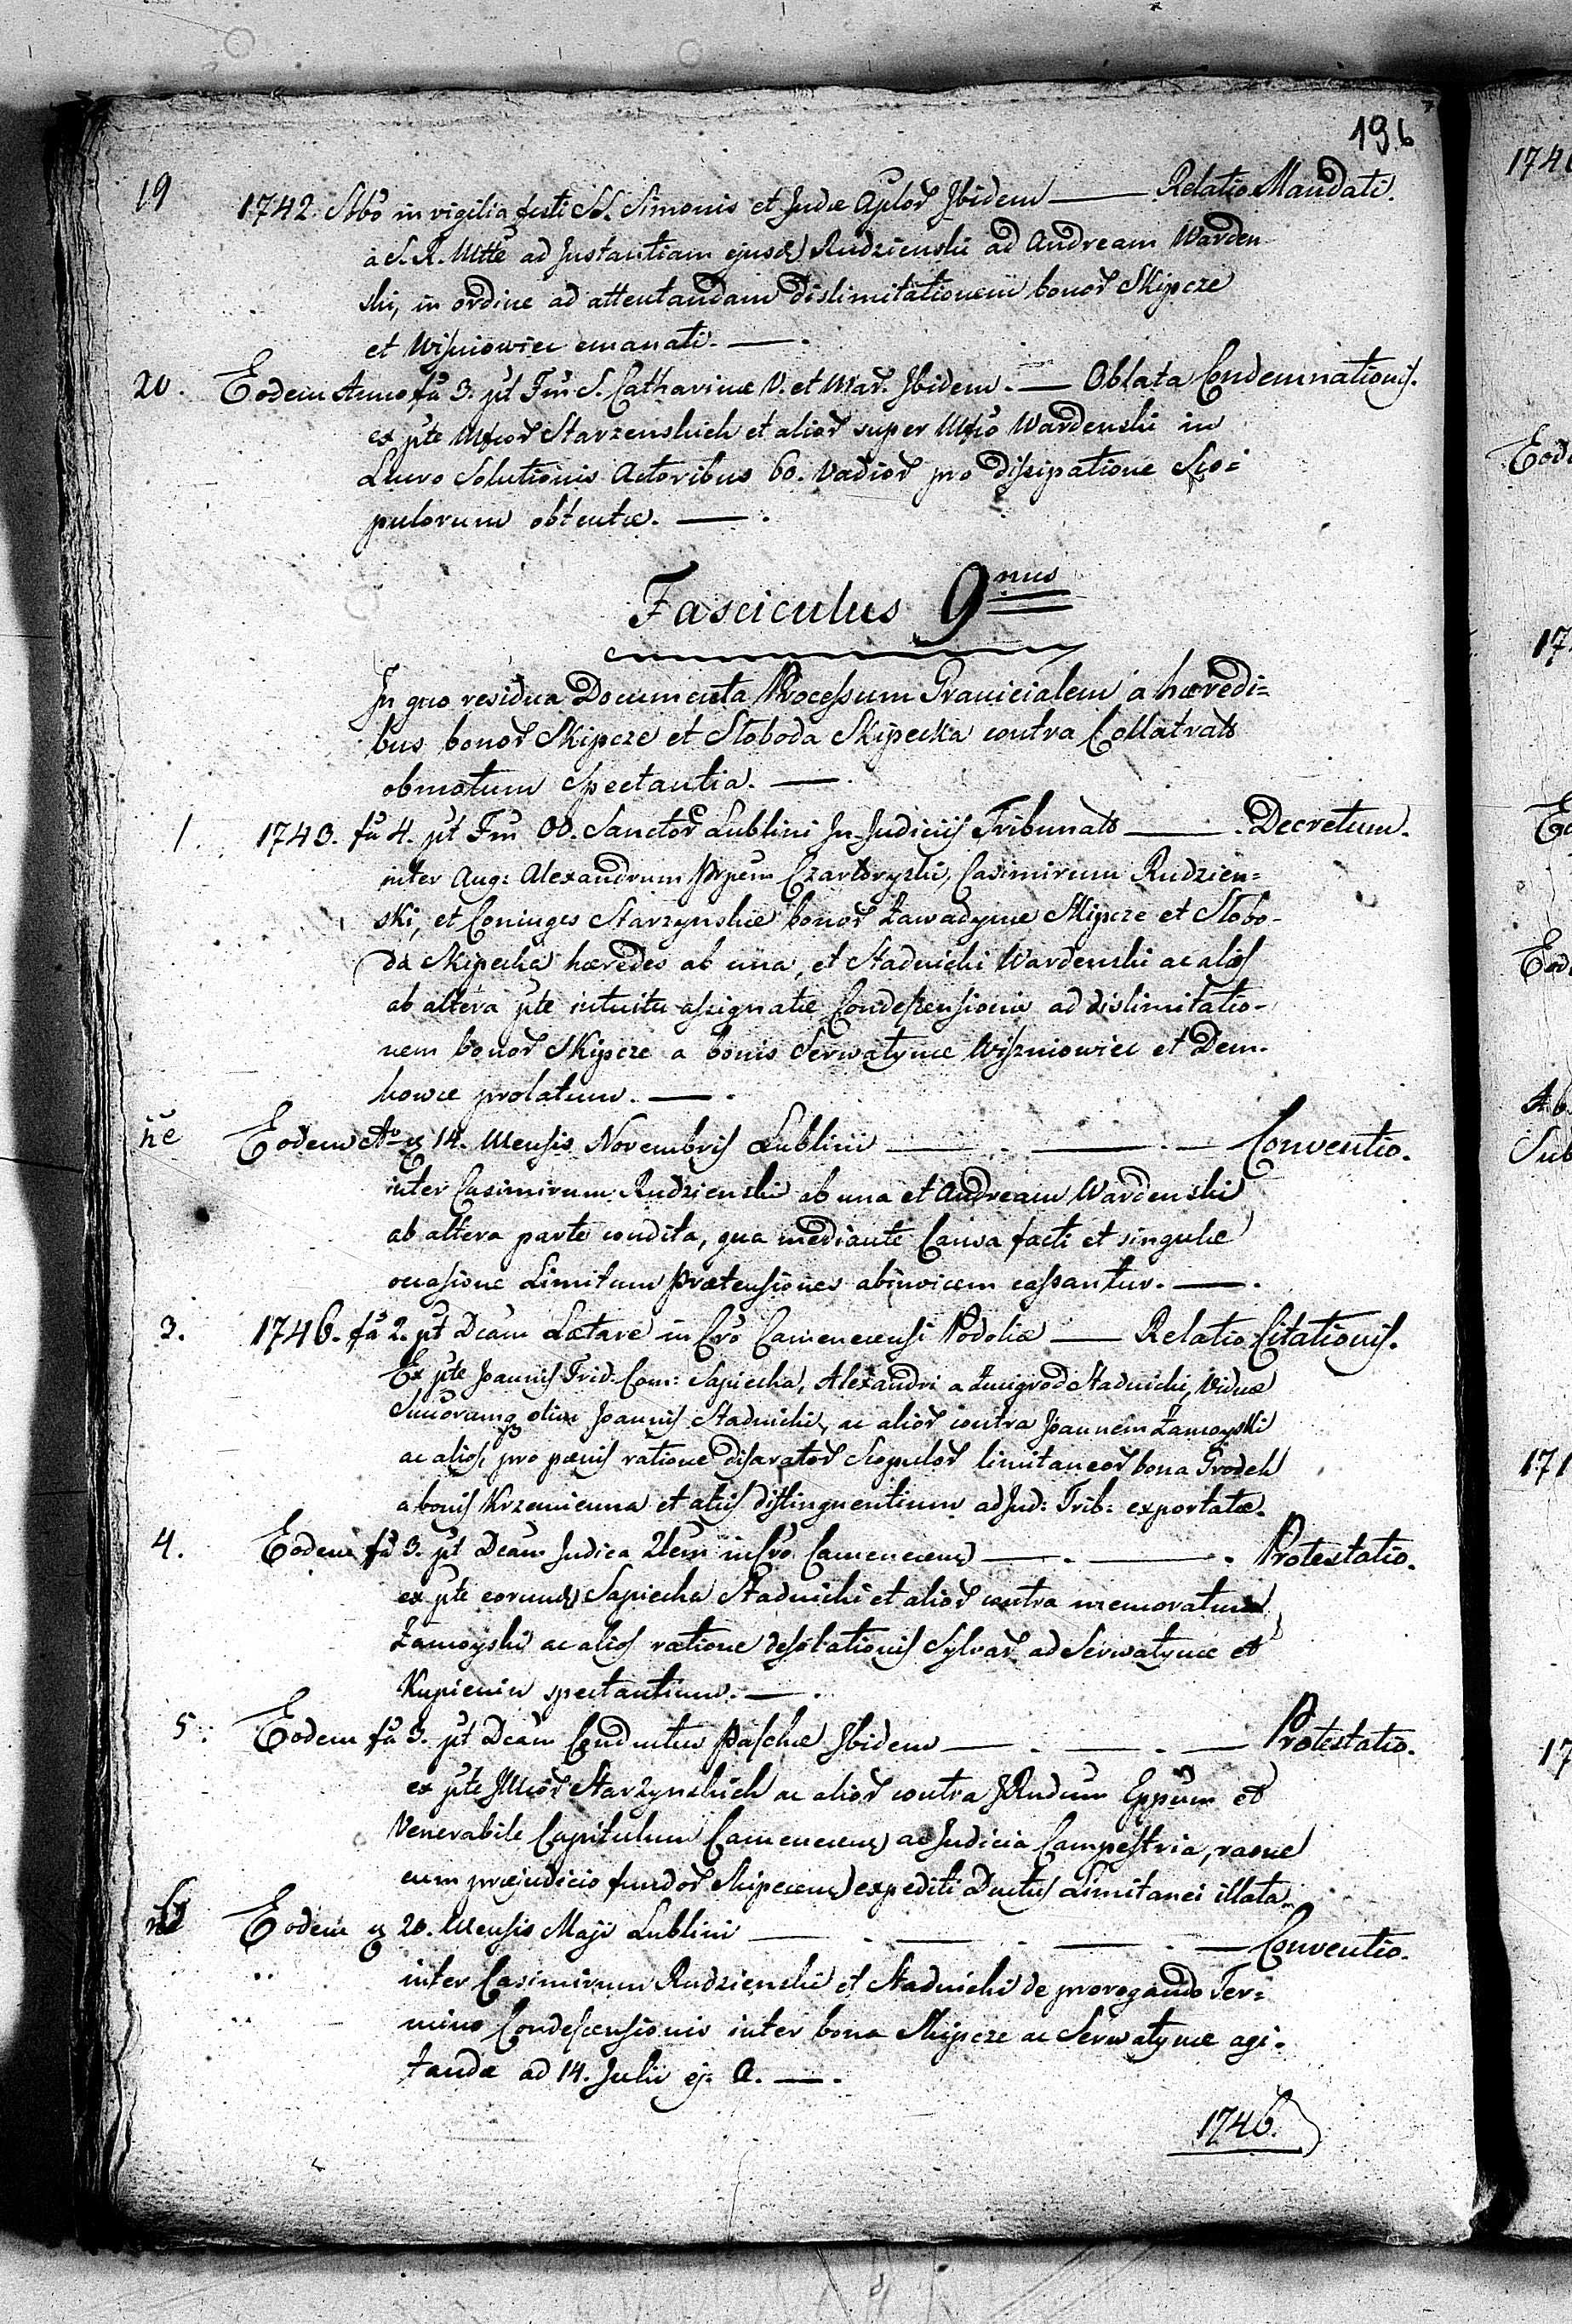 196
19 1742. Sbbo in vigilia festi SS. Simonis et Judæ Aplor Ibidem — Relatio Mandati.
a S. R. Mtte ad Instantiam ejusd Rudzienski ad Andream Warden
ski, in ordine ad attentandam dislimitationem bonor Skipcze
et Wiśniowiec emanati. —.
20. Eodem Anno fa 3. pt Fm S. Catharinæ V. et Mar. Ibidem. — Oblata Condemnationis.
ex pte Mficor Starzenskich et alior super Mfico Wardenski in
Lucro Solutionis Actoribus 60. Vadior pro dissipatione Sco=
pulorum obtentæ. —.
Fasciculus 9nus
In quo residua Documenta Processum Granicialem a hæredi=
bus bonor Skipcze et Słoboda Skipecka contra Collatrals
obmotum Spectantia. —.
1. 1743. fa 4. pt Fm OO. Sanctor Lublini In Judiciis Tribunals — . Decretum.
inter Aug: Alexandrum Prpem Czartoryski, Casimirum Rudzien=
ski, et Coniuges Starzynskie bonor Zawadynce Skipcze et Słobo-
da Skipecka hæredes ab una, et Stadnicki Wardenski ac alios
ab altera pte intuitu assignatæ Condescensionis ad dislimitatio-
nem bonor Skipcze a bonis Serwatynce Wiszniowiec et Dem-
kowce prolatum. —.
ne Eodem Ao 14. Mensis Novembris Lublini — . — . — Conventio.
inter Casimirum Rudzienski ab una et Andream Wardenski
ab altera parte condita, qua mediante Causa facti et singulæ
occasione Limitum Prætensiones abinvicem cassantur. —.
3. 1746. fa 2. pt Dcam Lætare in Cro Camenecensi Podoliæ — Relatio Citationis.
Ex pte Joannis Frid: Com: Sapiecha, Alexandri a Zmigrod Stadnicki, Viduæ
olim Joannis Stadnicki, ac alior contra Joannem Zamoyski
ac alios, pro pœnis ratione disarator Scopulor limitaneor bona Grodek
a bonis Krzemienna et aliis distinguentium ad Jud: Trib: exportatæ.
4. Eodem fa 3. pt Dcam Judica in Cro Camenecen — . — . Protestatio.
ex pte eorund Sapiecha Stadnicki et alior contra memoratum
Zamoyski ac alios ratione desolationis Sylvar ad Serwatynce et
Kupienin spectantium. —.
5. Eodem fa 3. pt Dcam Conductus Paschæ Ibidem — . — . — Protestatio.
ex pte Mficor Starzynskich ac alior contra Rndum Eppum et
Venerabile Capitulum Camenecen ac Judicia Campestria, raone
cum præjudicio fundor Skipecen expediti Ductus Limitanei illata.
Eodem 20. Mensis Maji Lublini — . — . — . — Conventio.
inter Casimirum Rudzienski et Stadnicki de prorogando Ter=
mino Condescensionis inter bona Skipcze ac Serwatynce agi-
tandæ ad 14. Julii ej. A. —.
1746.